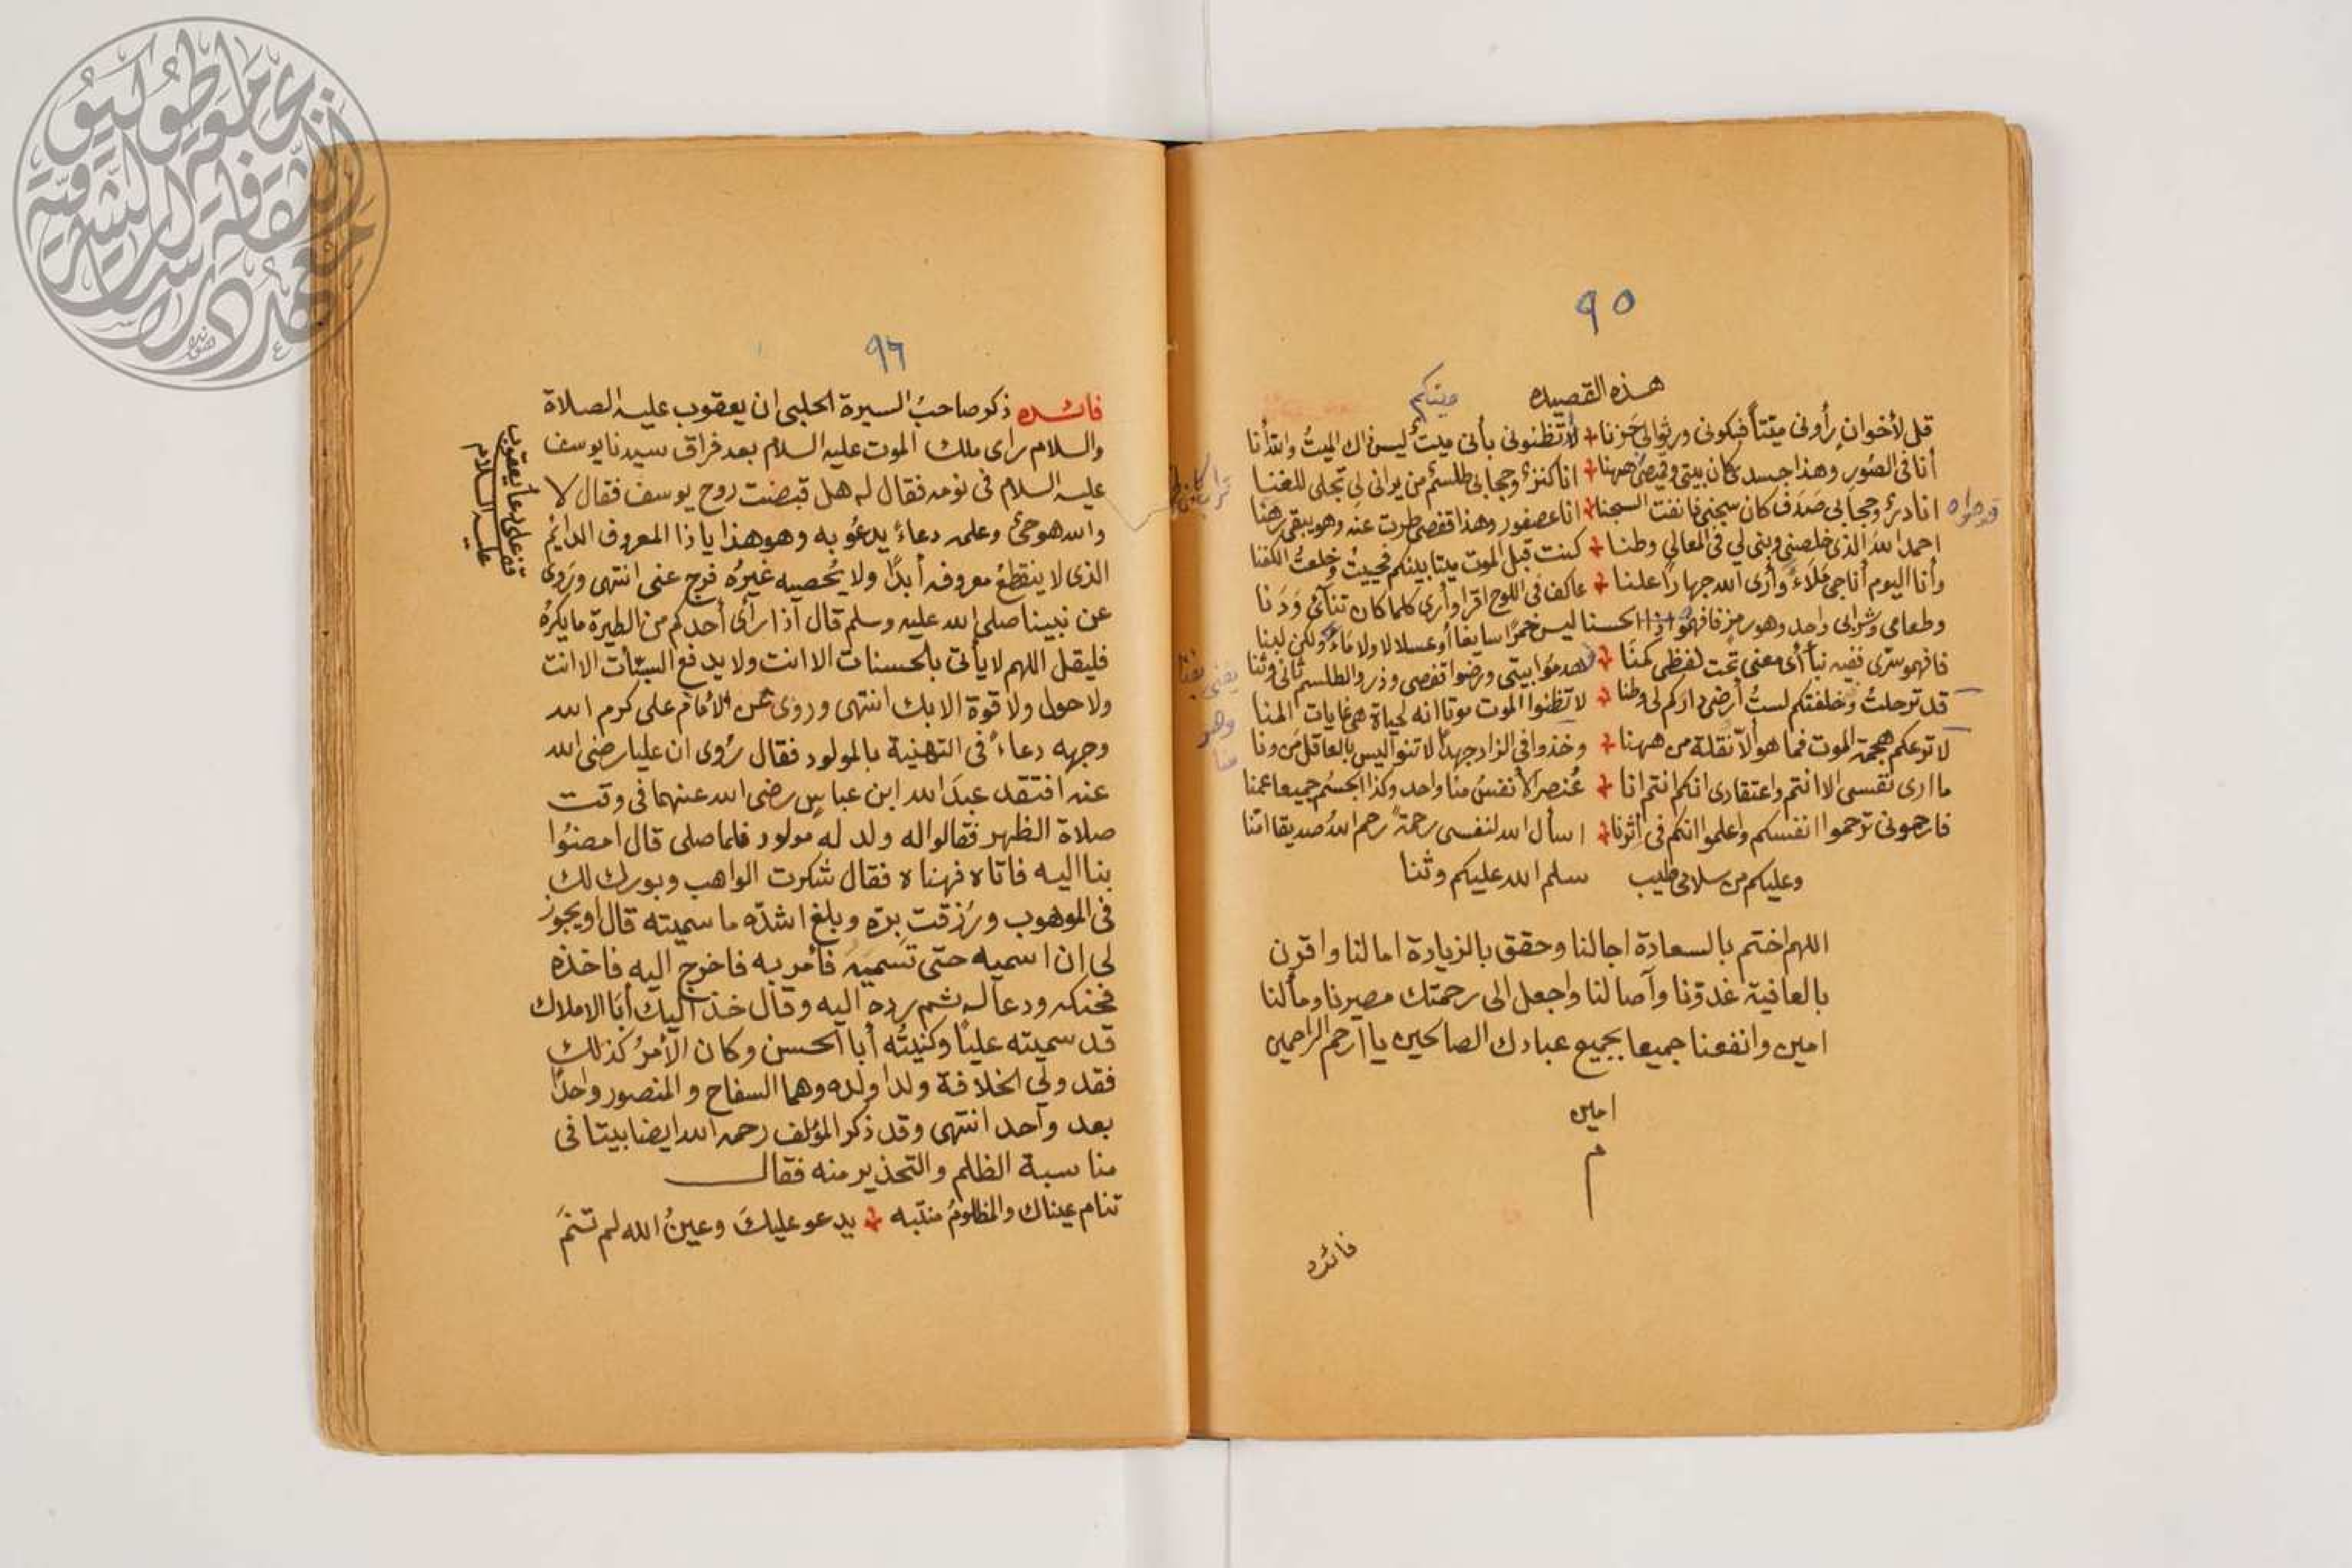 ٩٥
هذه القصيده
ميتكم
قل لأخوان رأوني ميتتاً فبكوني ورثوا لي حَزَنا لا تظنوني بأني ميتٌ ليس ذاك الميتُ والله أنا
أنا في الصُور وهذا جسد كان بيتي وقميصي ههنا انا كنزٌ وحجابي طلسمٌ من يراني لي تجلى للغنا
انا درٌ وحجابي صَدَف كان سجني فانفت السجنا انا عصفور وهذا قفصي طرت عنه وهو يبقى رهنا
احمد اللهَ الذي خلصني وبنى لي في المعالي وطنا كنت قبل الموت ميتا بينكم فحييتُ وخلعتُ الكفنا
وأنا اليوم أناجي مَلَاءً وأرى الله جهارا علنا عاكف في اللوح اقرا وأرى كلما كان تنآئى وَدَنا
وطعامي وشرابي واحد وهو رمز فافهموا اذا الحسنا ليس خمرًا سايغا أو عسلا لا ولا ماءً ولكن لبنا
فافهمو سرى ففيه نبأ أي معنى تحت لفظي كمنَا اهدموا بيتي ورضوا قفصي وذروا لطلسم ثاني وثنا
قد ترحلتُ وخلفتكم لستُ أرضى داركم لي وطنا لا تظنوا الموت موتا انه لحياة هي غايات المنا
لا ترعكم هجمة الموت فما هو الا نقلة من ههنا وخذوا في الزاد جهداً لا تنوا ليس بالعاقل من ونا
ما ارى نفسي الا انتم واعتقادى انكم انتم انا عُنصر الأنفسُ منا واحد وكذا الجسُم جميعا عمنا
فارحموني ترحموا انفسكم واعلموا انكم في اثرنا اسأل الله لنفسي رحمةً رحم اللهُ صديقا امنا
وعليكم من سلامي طيب سلم الله عليكم وثنا
اللهم اختم بالسعادة اجالنا وحقق بالزيادة امالنا واقرن
بالعافية غدوّنا وآصالنا واجعل الى رحمتك مصيرنا ومألنا
امين وانفعنا جميعا بجميع عبادك الصالحين يا ارحم الراحمين
امين
م
فائده
٩٦
فائده ذكر صاحبُ السيرة الحلبي ان يعقوب عليه الصلاة
والسلام راى ملك الموت عليه السلام بعد فراق سيدنا يوسف
عليه السلام في نومه فقال له هل قبضت روح يوسف فقال لا
والله هو حيٌ وعلمه دعاءً يدعُو به وهو هذا يا ذا المعروف الدايُم
الذي لا ينقطعُ معروفه أبدًا ولا يُحصيه غيرُه فرج عني انتهى ورَوى
عن نبينا صلى الله عليه وسلم قال اذا رأى أحدكم من الطيرة ما يكرهُ
فليقل اللهم لا يأتي بالحسنات الا انت ولا يدفع السيّأت الا انت
ولا حول ولا قوة الا بك انتهى وروى عن الامام على كرم الله
وجهه دعاءً في التهنية بالمولود فقال رُوى ان عليا رضي الله
عنه افتقد عبدَ الله ابن عباسٍ رضي الله عنهما في وقت
صلاة الظهر فقالوا له ولد له مولود فلما صلى قال امضُوا
بنا اليه فاتاه فهناه فقال شكرت الواهب وبورك لك
في الموهوب ورُزقت بِرّه وبلغ اشدّه ما سميته قال او يجوز
لي ان اسميه حتى تسميَهُ فأمر به فاخرج اليه فاخذه
فحنكه ودعا له ثم رده اليه وقال خذ اليك أبَا الاملاك
قد سميته عليًا وكنيتُه أبا الحسن وكان الأمرُ كذلك
فقد ولي الخلافة ولدا ولده وهما السفاح والمنصور واحدًا
بعد واحد انتهى وقد ذكر المؤلف رحمه الله ايضا بيتا في
مناسبة الظلم والتحذير منه فقال
تنام عيناك والمظلومُ منتبه يدعو عليكَ وعينُ الله لم تنمَ
قف على دعأ يعقوب
عليه السلام